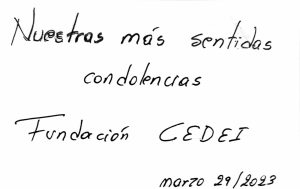 Nuestras más sentidas
condolencias
Fundación CEDEI
marzo 29/2023